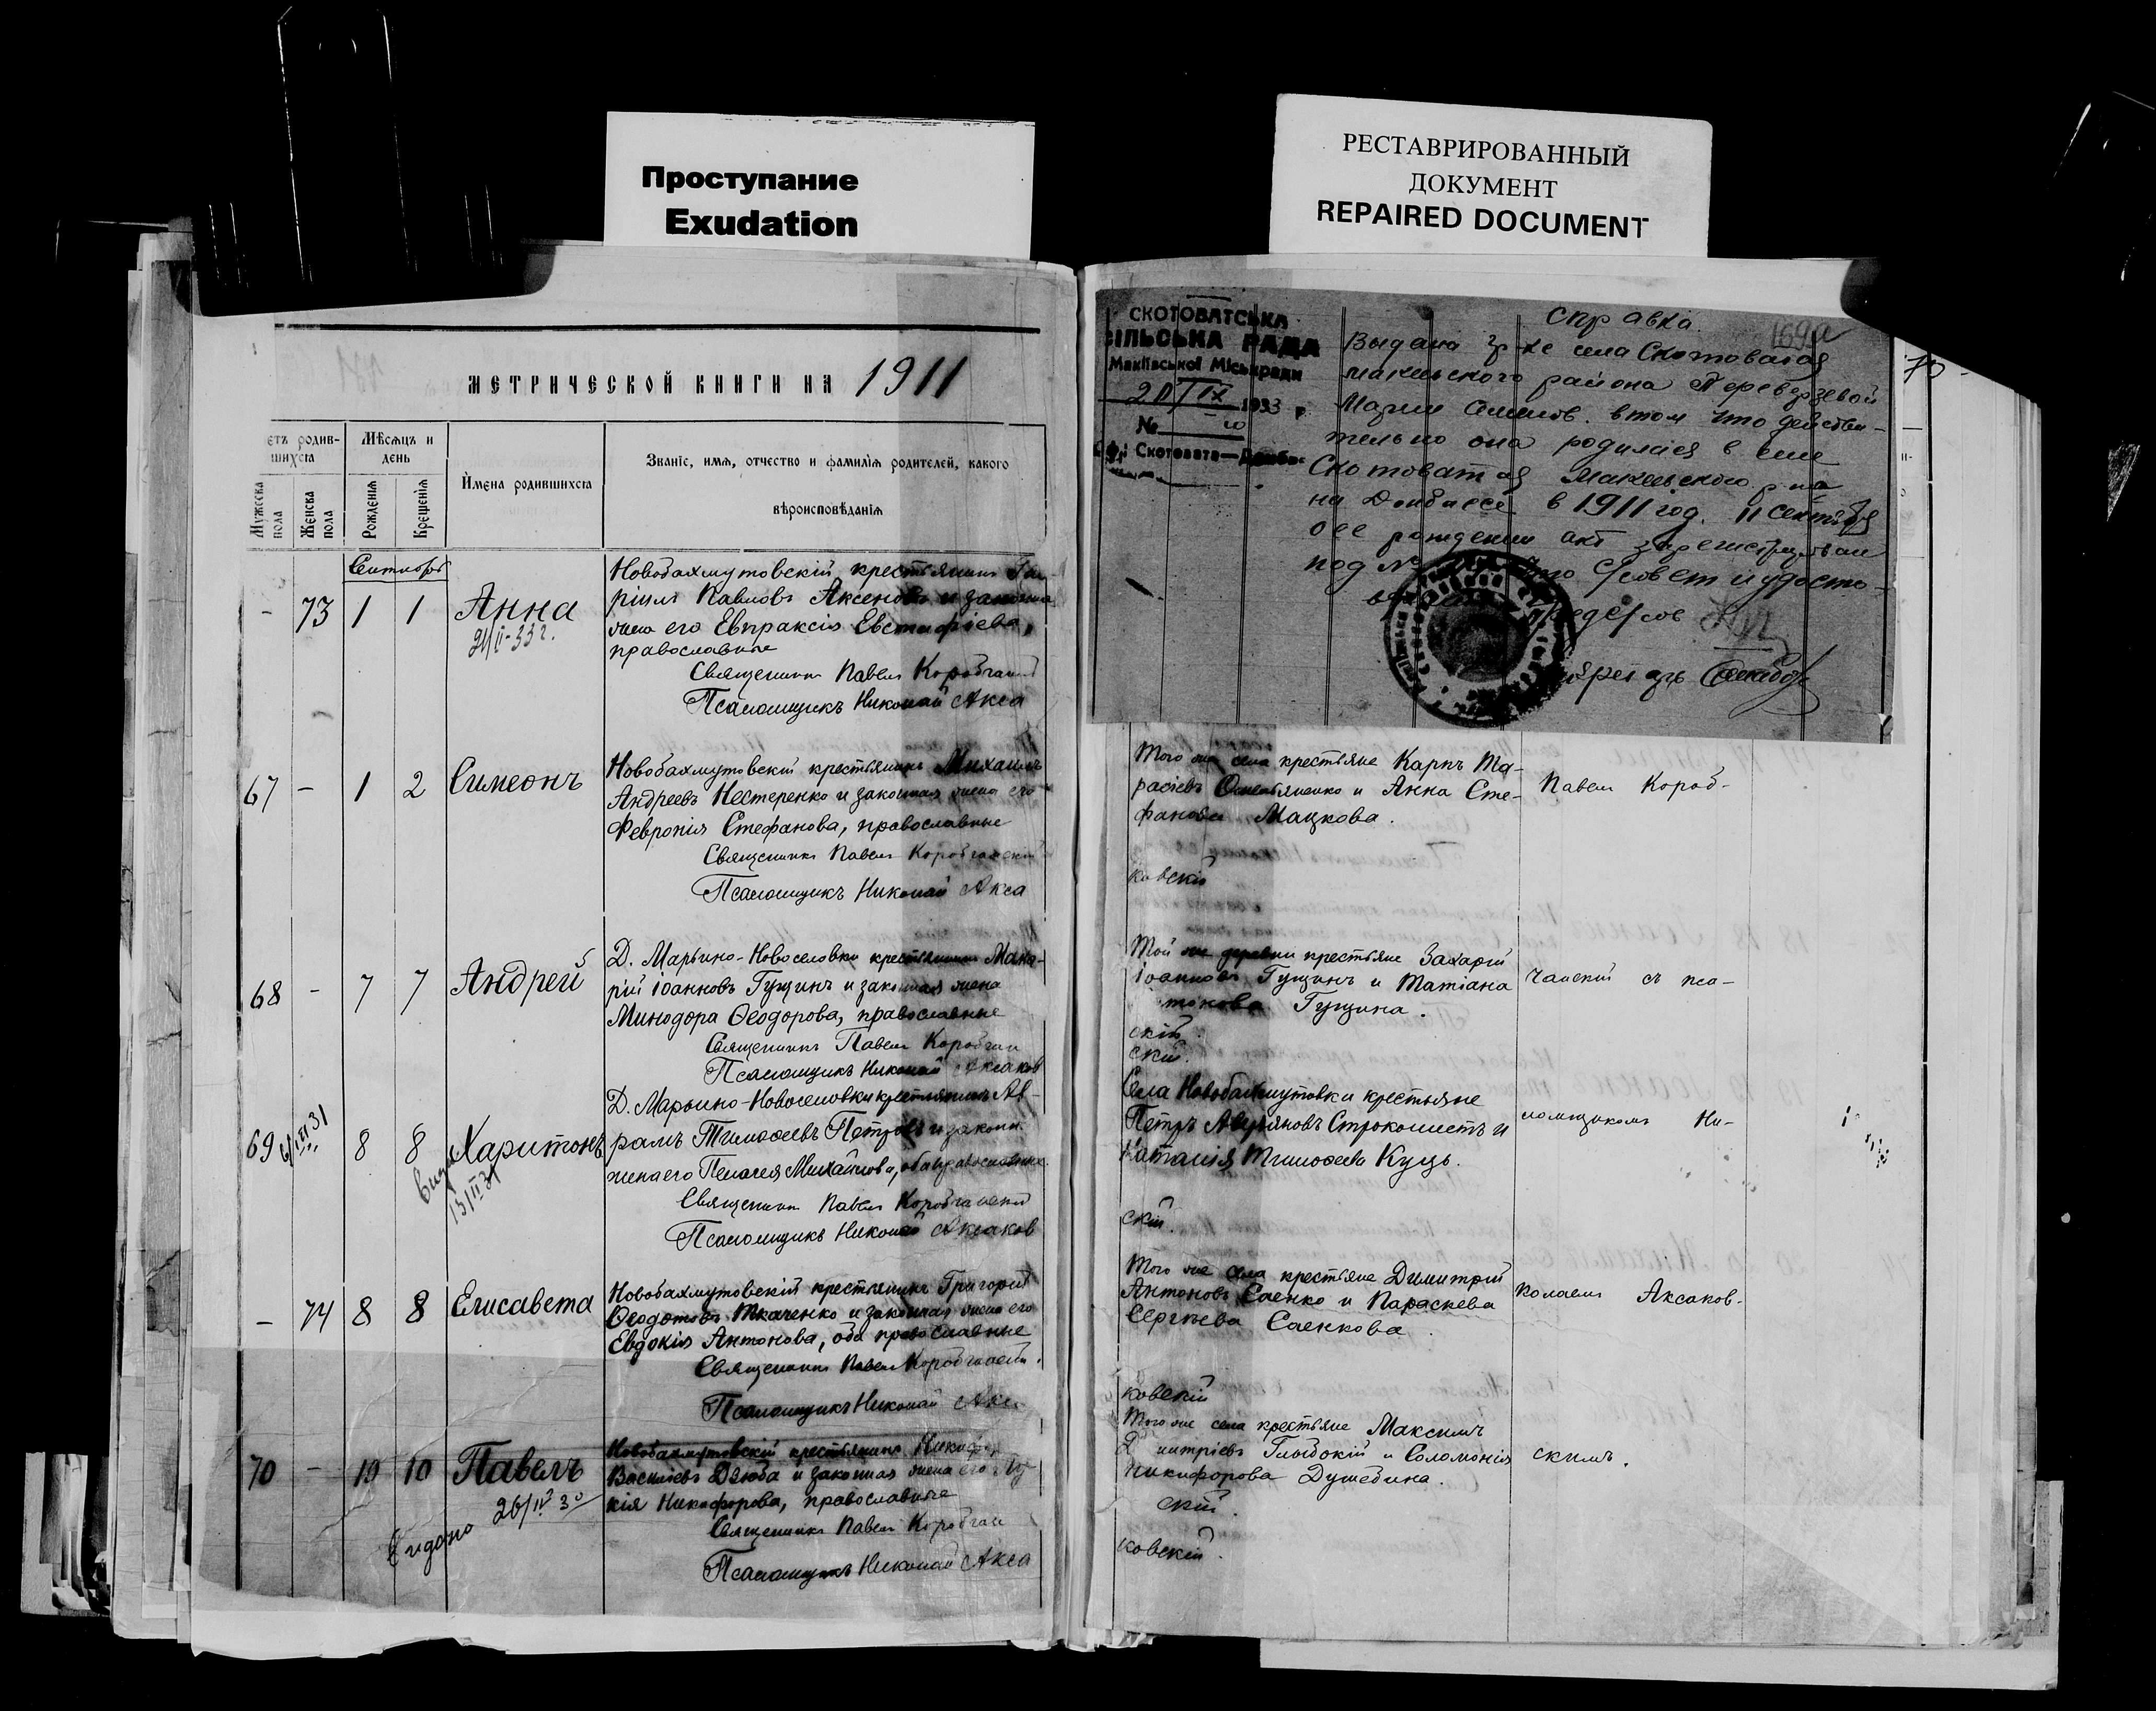 Проступание
Exudation
РЕСТАВРИРОВАННЫЙ
ДОКУМЕНТ
REPAIRED DOCUMENT
МЕТРИЧЕСКОЙ КНИГИ НА 1911
етъ родив-
шихсѧ
Мѣсѧцъ и
день
Мужеска
пола
Женска
пола
Рожденїѧ
Крещенїѧ
Имена родившихсѧ
Званїе, имѧ, отчество и фамилїѧ родителей, какого
вѣроисповѣданїѧ
Сентябрь
- 73 1 1 Анна
21/II-33г.
Новобахмутовскій крестьянинъ
ріилъ Павловъ Аксеновъ и законная
жена его Евпраксія Евстафіева,
православные
Священникъ Павелъ Коробчан
Псаломщикъ Николай Акса
67 - 1 2 Симеонъ
Новобахмутовскій крестьянинъ Михаилъ
Андреевъ Нестеренко и законная жена его
Февронія Стефанова, православные
Священникъ Павелъ Коробчанскій
Псаломщикъ Николай Акса
68 - 7 7 Андрей
Д. Марьино-Новоселовки крестьянинъ Мака-
рій Іоанновъ Гущинъ и законная жена
Минодора Ѳеодорова, православные
Священникъ Павелъ Коробчан
Псаломщикъ Николай Аксаков
69 8 8 Харитонъ
Д. Марьино-Новоселовки крестьянинъ Ав-
рамъ Тимоѳеевъ Петровъ и законн.
жена его Пелагея Михайлова, оба православные
Священникъ Павелъ Коробчанскій
Псаломщикъ Николай Аксаков
- 74 8 8 Елисавета
Новобахмутовскій крестьянинъ Григорій
Ѳеодотовъ Ткаченко и законная жена его
Евдокія Антонова, оба православные
Священникъ Павелъ Коробчанскій.
Псаломщикъ Николай Акса
70 - 10 10 Павелъ
Видано 26/IV 30
Новобахмутовскій крестьянинъ
Васильевъ Дзюба и законная жена его
кія Никифорова, православные
Священникъ Павелъ Коробчан
Псаломщикъ Николай Акса
СКОТОВАТСЬКА
СІЛЬСЬКА РАДА
Макіївської Міськради
20/IX 1933 р.
№
Скотовата—Донбас
Справка
169а
70
Выдана гр-ке села Скотоватая
макеевского района Переверзевой
Марии Семенов. в том что действи-
тельно она родилася в селе
Скотоватая Макеевского р-на
на Донбассе в 1911 год. 11 сентября
о ее рождении акт зарегистрирован
под № совет и удосто-
Того же села крестьяне Карпъ Та-
расіевъ Омельяненко и Анна Сте-
фанова Мацкова.
Павелъ Короб-
ковскій
Той же деревни крестьяне Захарій
Іоанновъ Гущинъ и Татіана
Гущина.
чанскій съ пса-
скій.
скій.
Села Новобахмутовки крестьяне
Петръ Аверьяновъ Строкошестъ и
Наталія Тимоѳеева Куць.
ломщикомъ Ни-
скій.
Того же села крестьяне Димитрій
Антоновъ Саенко и Параскева
Сергѣева Саенкова.
колаемъ Аксаков-
ковскій
Того же села крестьяне Максимъ
Димитріевъ Глыбокій и Соломонія
Никифорова Душебина.
скимъ.
скій.
ковскій.